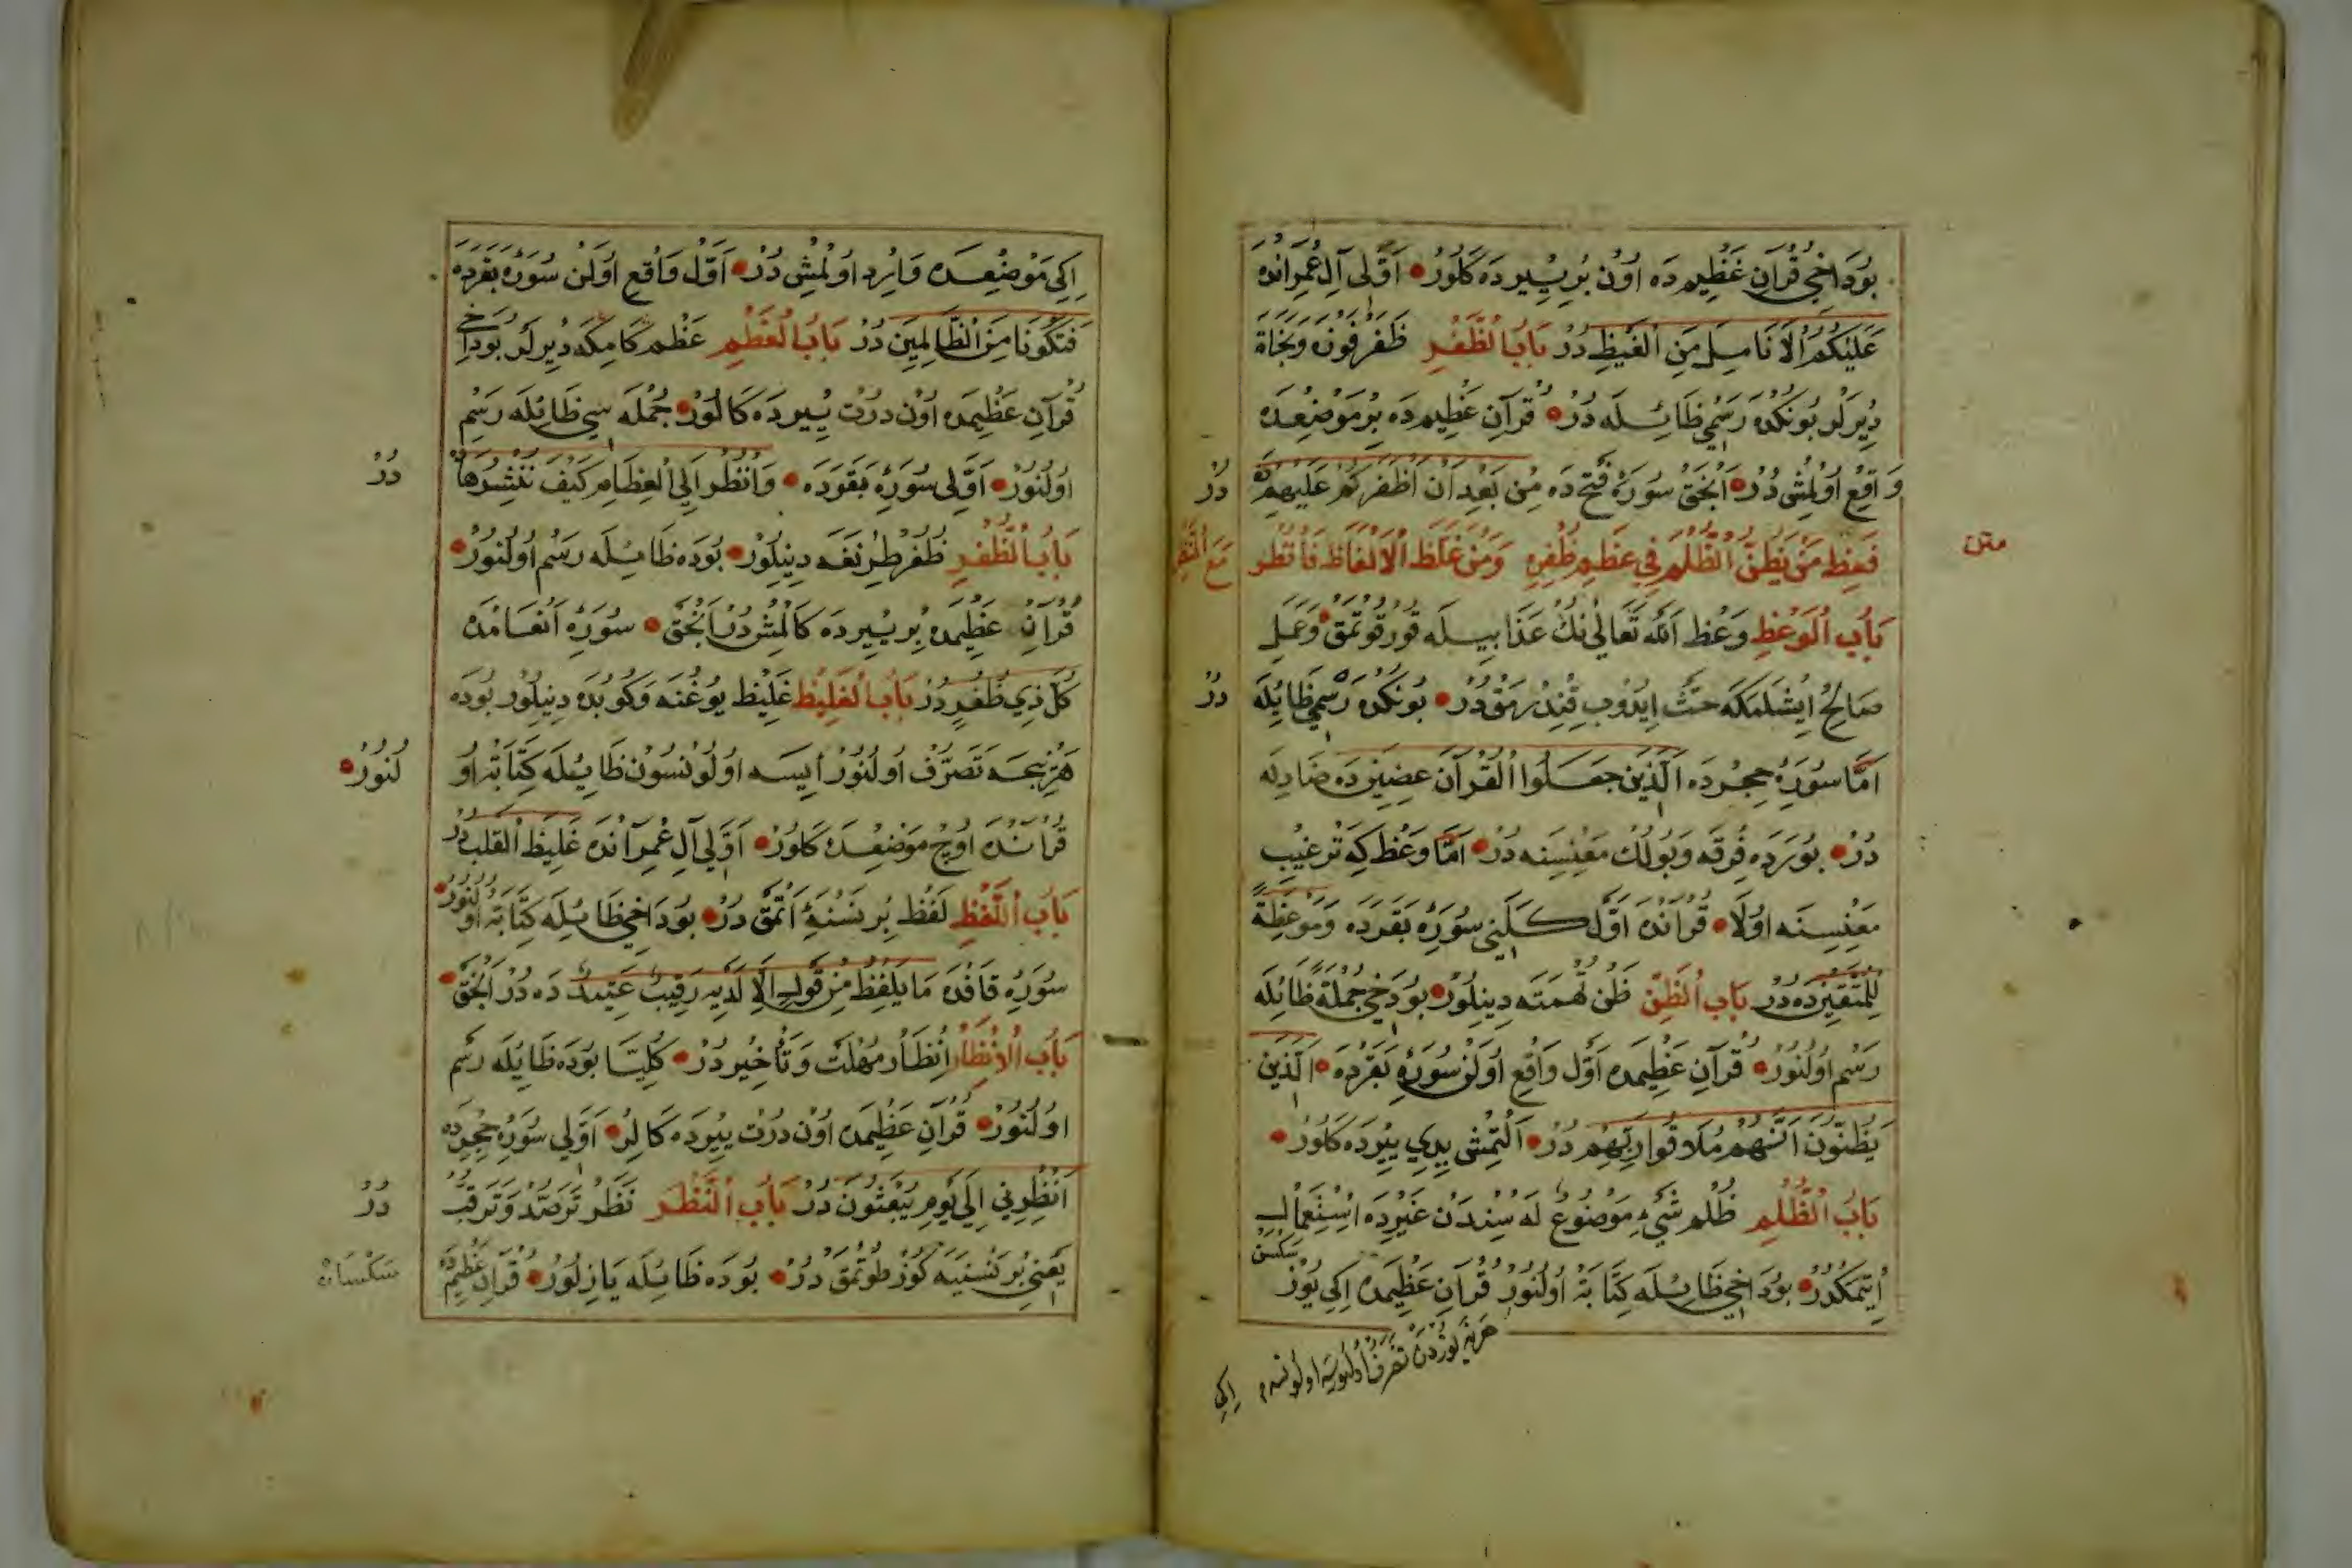 بُودَاخِي قُرآنِ عَظِيمِدَه اُونْ بِرْ يِيرِدَه كَلُورْ اَوَّلِى آلِ عُمْرَانْدَه
عَلَيْكُمُ الْاَنَامِلَ مِنَ الْغَيْظِ دُرْ بَابُ الظَّفَرِ ظَفَرْ فَوْزْ وَنَجَاةْ
دِيرْلَرْ بُونُكْدَه رَسْمِى ظَا ئِيلَه دُرْ قُرآنِ عَظِيمِدَه بِرْ مَوْضِعِدَه
وَاقِعْ اُولْمِشْ دُرْ اَنْجَقْ سُورَۀِ فَتْحِ دَه مِنْ بَعْدِ اَنْ اَظْفَرَكُمْ عَلَيْهِمْ دَه دُرْ
متن
فَعِظْ مَنْ يَظُنُّ الظُّلْمَ فِي عَظْمِ ظُفْرِهِ وَمَنْ غَلَّظَ الْاَلْفَاظَ فَانْظُرْ مَعَ النَّظَرِ
بَابُ الْوَعْظِ وَعْظْ اَللّٰه تَعَالٰى نِكْ عَذَابِيلَه قُورْقُوتْمَقْ وَعَمَلِ
صَالِحْ اِيشْلَمَكَه حَثْ اِيدُوبْ قَنْدُرْمَقْ دُرْ بُونُكْدَه رَسْمِى ظَا يِلَه دُرْ
اَمَّا سُورَۀِ حِجِرْدَه اَلَّذِينَ جَعَلُوا الْقُرْآنَ عِضِينَ دَه ضَادِيلَه
دُرْ بُورَدَه فِرْقَه وَبُولُكْ مَعْنِسِنَه دُرْ اَمَّا وَعْظْ كِه تَرْغِيبْ
مَعْنِسِنَه اُولَا قُرآنْدَه اَوَّلْ كَلَنِى سُورَۀِ بَقَرَدَه وَمَوْعِظَةً
لِلْمُتَّقِينَ دَه دُرْ بَابُ الظَّنِّ ظَنْ تُهْمَتَه دِينِلُورْ بُودَخِي جُمْلَه ظَا ئِلَه
رَسْم اُولُنُورْ قُرآنِ عَظِيمِدَه اَوَّلْ وَاقِعْ اُولَنْ سُورَۀِ بَقَرْدَه اَلَّذِينَ
يَظُنُّونَ اَنَّهُمْ مُلَاقُوا رَبِّهِمْ دُرْ اَلْتْمِشْ يِدِى يِيرْدَه كَلُورْ
بَابُ الظُّلْمِ ظُلْم شَىْءِ مَوْضُوعٌ لَه سِنْدَنْ غَيْرِدَه اِسْتِعْمَالْ
اِيتْمَكْدُرْ بُودَاخِي ظَا ئِيلَه كِتَابَتْ اُولُنُورْ قُرآنِ عَظِيمِدَه اِكِى يُوزْ سكسن
اِكِى
اِكِى مَوْضِعِدَه وَارِدْ اُولْمِشْ دُرْ اَوَّلْ وَاقِعْ اُولَنْ سُورَۀِ بَقَرَدَه
فَتَكُونَا مِنَ الظَّالِمِينَ دُرْ بَابُ الْعَظْمِ عَظْم كَامِكَه دِيرْلَرْ بُودَاخِي
قُرآنِ عَظِيمِدَه اُونْ دُرْتْ يِيرِدَه كَالُورْ جُمْلَه سِى ظَا ئِلَه رَسْمِ
اُولُنُورْ اَوَّلِى سُورَۀِ بَقَرَدَه وَانْظُرْ اِلَى الْعِظَامِ كَيْفَ نُنْشِزُهَا دُرْ
بَابُ الظُّفْرِ ظُفْرْ طِرْنَغَه دِينِلُورْ بُودَه ظَا ئِيلَه رَسْم اُولُنُورْ
قُرآنِ عَظِيمِدَه بِرْ يِيرِدَه كَالْمِشْ دُرْ اَنْجَقْ سُورَۀِ اَنْعَامْدَه
كُلَّ ذِي ظُفُرٍ دُرْ بَابُ الْغَلِيظِ غَلِيظْ يُوغُنَه وَ دِينِلُورْ بُودَه
هَرْ نِيجَه تَصَرُّفْ اُولُنُورْ اِيسَه اُولُونْسُونْ ظَا يِلَه كِتَابَتْ اُولُنُورْ
قُرآنْدَه اُوچْ مَوْضِعْدَه كَلُورْ اَوَّلِى آلِ عُمْرآنْدَه غَلِيظَ الْقَلْبِ دُرْ
بَابُ اللَّفْظِ لَفْظْ بِرْ نَسْنَۀِ اَتْمَقْ دُرْ بُودَاخِي ظَا ئِلَه كِتَابَتْ اُولُنُورْ
سُورَۀِ قَافْدَه مَا يَلْفِظُ مِنْ قَوْلٍ اِلَّا لَدَيْهِ رَقِيبٌ عَتِيدٌ دَه دُرْ اَنْجَقْ
بَابُ الْاِنْظَارِ اِنْظَارْ مُهْلَتْ وَتَأْخِيرْ دُرْ كُلِّيَّا بُودَه ظَا يِلَه رَسْم
اُولُنُورْ قُرآنِ عَظِيمِدَه اُونْ دُرْتْ يِيرْدَه كَالِرْ اَوَّلِى سُورَۀِ حِجِرْدَه
اَنْظِرْنِي اِلٰى يَوْمِ يُبْعَثُونَ دُرْ بَابُ النَّظَرِ نَظَرْ تَرَصُّدْ وَتَرَقُّبْ دُرْ
يَعْنِي بِرْ نَسْنَيَه كُوزْ طُوتْمَقْ دُرْ بُودَه ظَا ئِلَه يَازِلُورْ قُرآنِ عَظِيمْدَه
سَكْسَانْ